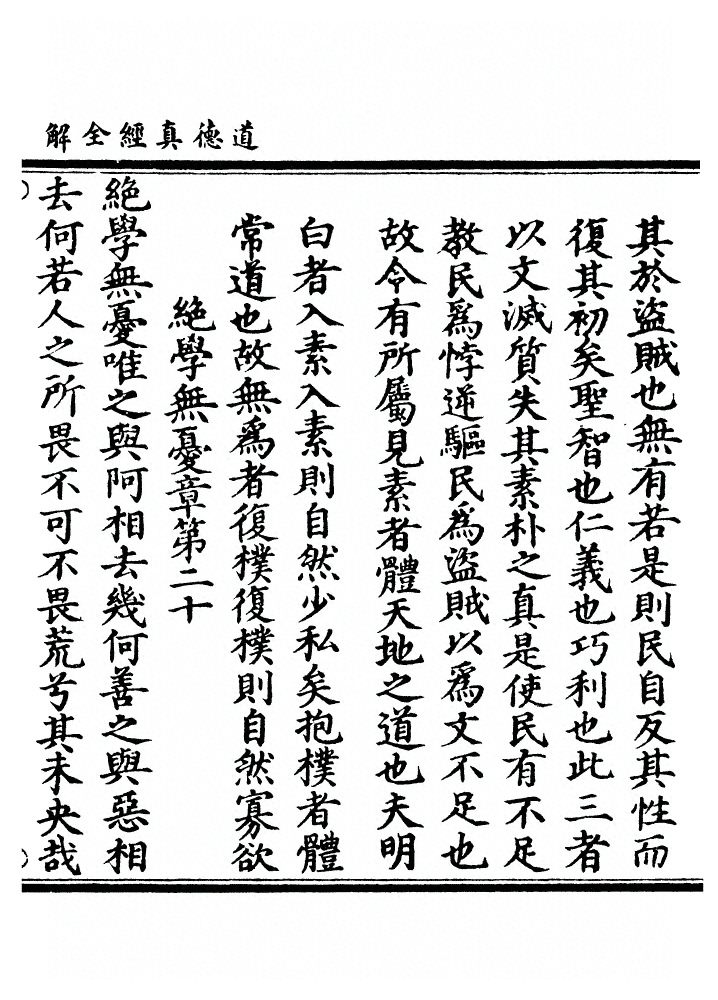 道德真經全解
其於盜賊也無有若是則民自反其性而
復其初矣聖智也仁義也巧利也此三者
以文滅質失其素朴之真是使民有不足
教民爲悖逆驅民爲盜賊以爲文不足也
故令有所屬見素者體天地之道也夫明
白者入素入素則自然少私矣抱樸者體
常道也故無爲者復樸復樸則自然寡欲
絕學無憂章第二十
絕學無憂唯之與阿相去幾何善之與惡相
去何若人之所畏不可不畏荒兮其未央哉